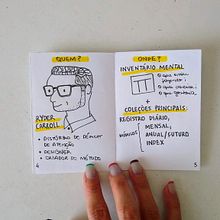 QUEM?
RYDER
CARROLL
• DISTÚRBIO DE DÉFICIT
DE ATENÇÃO
• DESIGNER
• CRIADOR DO MÉTODO
4
ONDE?
INVENTÁRIO MENTAL
+
COLEÇÕES PRINCIPAIS:
REGISTRO DIÁRIO,
MENSAL,
ANUAL/FUTURO
INDEX
5